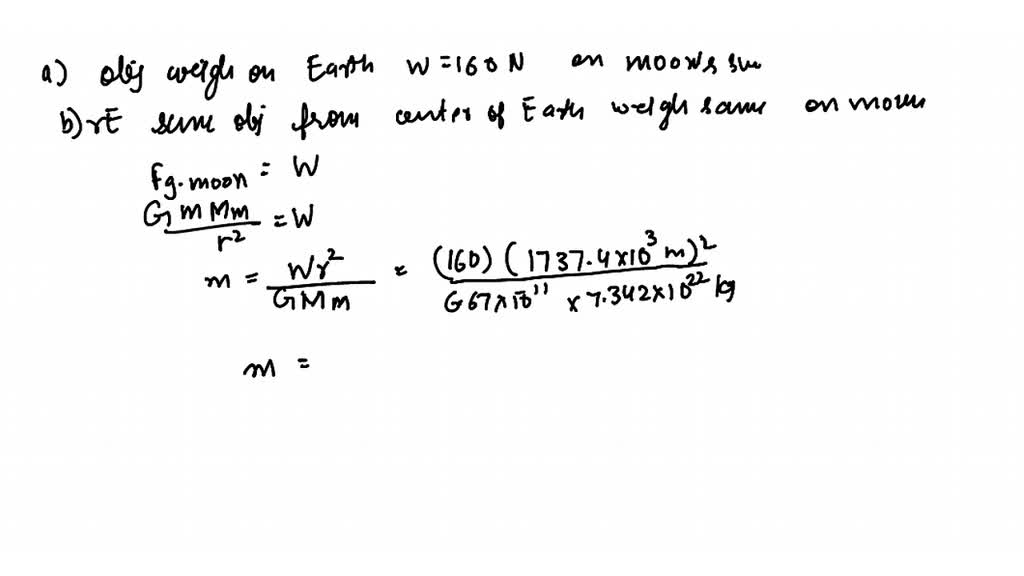 a) obj weigh on Earth W=160N on moon's su
b) rE same obj from center of Earth weigh same on moon
Fg.moon = W
G m Mm / r² = W
m = Wr² / GMm = (160) (1737.4×10³ m)² / 6.67×10¹¹ × 7.342×10²² kg
m =